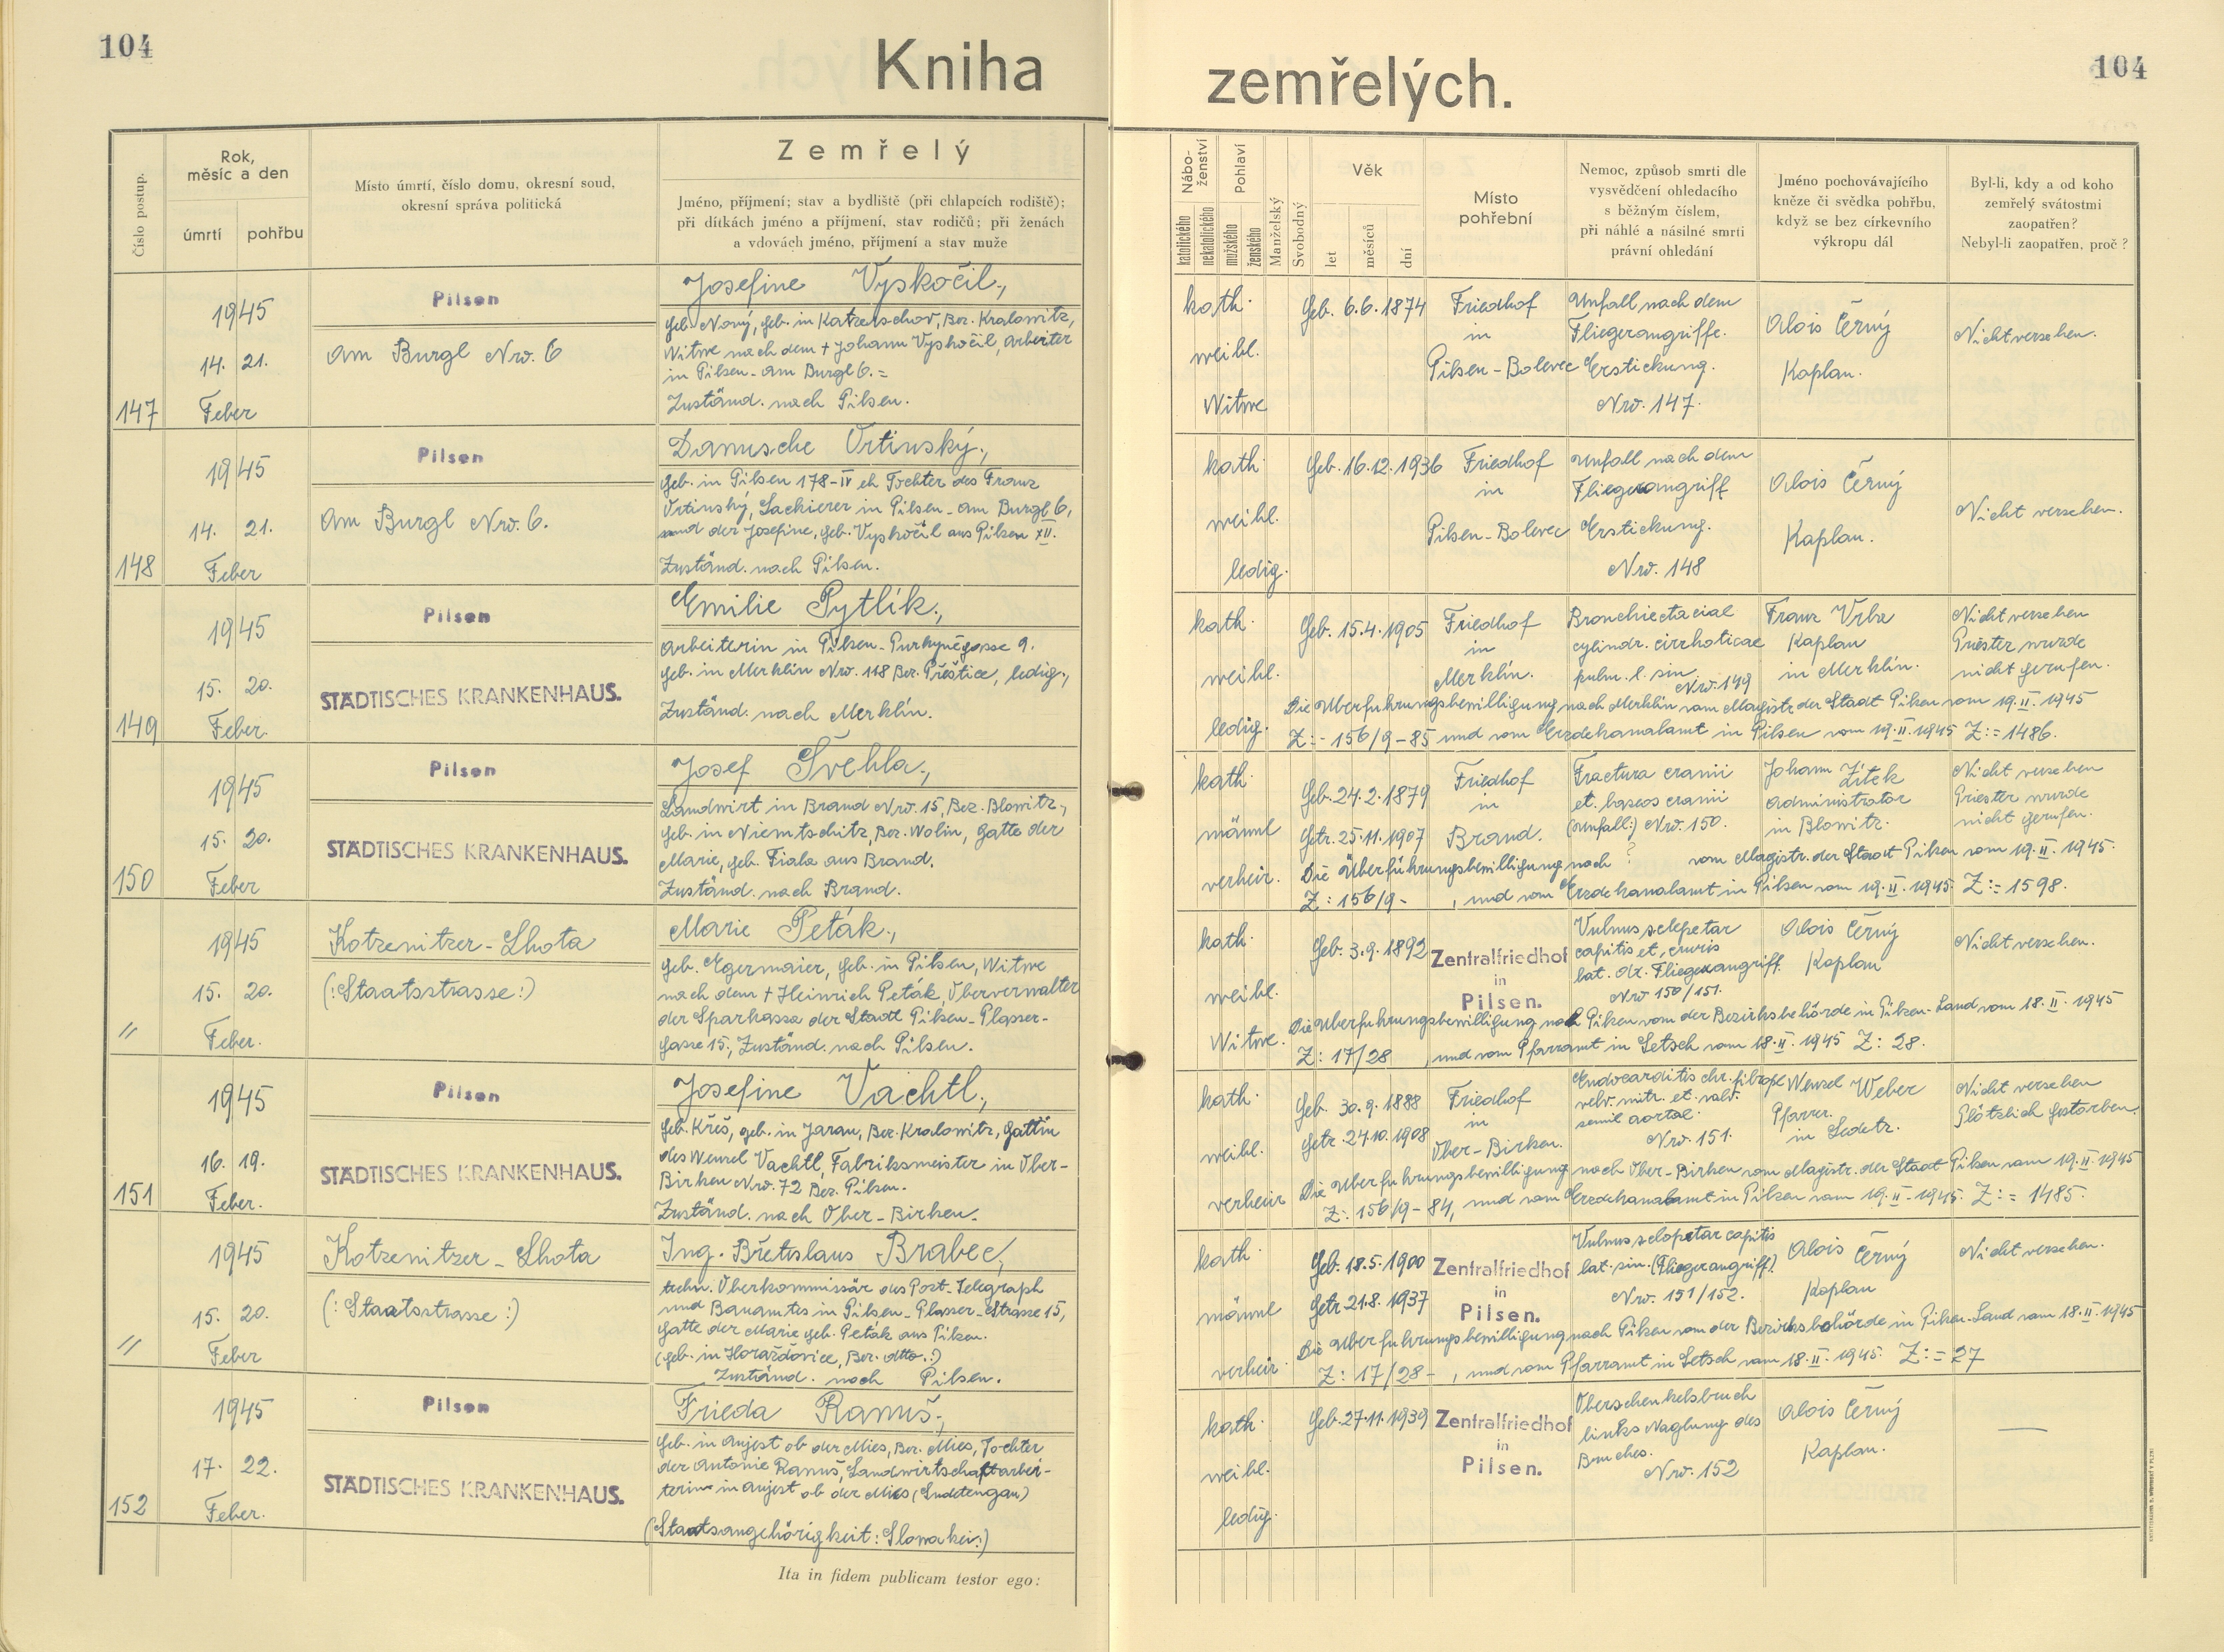 104
Kniha
zemřelých.
104
Číslo postup.
Rok,
měsíc a den
úmrtí
pohřbu
Místo úmrtí, číslo domu, okresní soud,
okresní správa politická
Zemřelý
Jméno, příjmení; stav a bydliště (při chlapcích rodiště);
při dítkách jméno a příjmení, stav rodičů; při ženách
a vdovách jméno, příjmení a stav muže
Nábo-
ženství
katolického
nekatolického
Pohlaví
mužského
ženského
Manželský
Svobodný
Věk
let
měsíců
dní
Místo
pohřební
Nemoc, způsob smrti dle
vysvědčení ohledacího
s běžným číslem,
při náhlé a násilné smrti
právní ohledání
Jméno pochovávajícího
kněze či svědka pohřbu,
když se bez církevního
výkropu dál
Byl-li, kdy a od koho
zemřelý svátostmi
zaopatřen?
Nebyl-li zaopatřen, proč?
147
1945
14. 21.
Feber
Pilsen
Am Burgl Nro. 6
Josefine Vyskočil.,
geb. Nový, geb. in Katzerschov, Bez. Kralowitz,
Witwe nach dem + Johann Vyskočil, Arbeiter
in Pilsen - Am Burgl 6. =
Zuständ. nach Pilsen.
kath.
weibl.
Witwe
Geb. 6.6.1874
Friedhof
in
Pilsen-Bolevec
Unfall nach dem
Fliegerangriffe.
Erstickung.
Nro. 147.
Alois Černý
Kaplan.
Nicht versehen.
148
1945
14. 21.
Feber
Pilsen
Am Burgl Nro. 6.
Danusche Vrtinský.,
geb. in Pilsen 178-IV eh Tochter des Franz
Vrtinský, Lackierer in Pilsen - Am Burgl 6,
und der Josefine, geb. Vyskočil aus Pilsen XII.
Zuständ. nach Pilsen.
kath.
weibl.
ledig.
Geb. 16.12.1936
Friedhof
in
Pilsen-Bolevec
Unfall nach dem
Fliegerangriff
Erstickung.
Nro. 148
Alois Černý
Kaplan.
Nicht versehen.
149
1945
15. 20.
Feber.
Pilsen
STÄDTISCHES KRANKENHAUS.
Emilie Pytlík.,
Arbeiterin in Pilsen - Purkyněgasse 9.
geb. in Merklín Nro. 118 Bez. Přeštice, ledig.,
Zuständ. nach Merklín.
kath.
weibl.
ledig.
Geb. 15.4.1905
Friedhof
in
Merklín.
Bronchiectaciae
cylindr. cirrhoticae
pulm. l. sin.
Nro. 149
Franz Vrba
Kaplan
in Merklín.
Nicht versehen
Priester wurde
nicht gerufen.
Die Überfuhrungsbewilligung nach Merklín vom Magistr. der Stadt Pilsen vom 19.II.1945
Z:- 156/9-85 und vom Erzdekanalamt in Pilsen vom 19.II.1945 Z:= 1486.
150
1945
15. 20.
Feber
Pilsen
STÄDTISCHES KRANKENHAUS.
Josef Švehla.,
Landwirt in Brand Nro. 15, Bez. Blowitz.,
geb. in Niemtschitz, Bez. Wolin, Gatte der
Marie, geb. Fiala aus Brand.
Zuständ. nach Brand.
kath.
männl
verheir.
Geb. 24.2.1879
Getr. 25.11.1907
Friedhof
in
Brand.
Fractura cranii
et. baseos cranii
(Unfall:) Nro. 150.
Johann Žítek
Administrator
in Blowitz.
Nicht versehen
Priester wurde
nicht gerufen.
Die Überführungsbewilligung nach ? vom Magistr. der Stadt Pilsen vom 19.II.1945.
Z: 156/9- , und vom Erzdekanalamt in Pilsen vom 19.II.1945. Z:= 1598.
//
1945
15. 20.
Feber.
Kotzenitzer-Lhota
(:Staatsstrasse:)
Marie Peták.,
geb. Egermaier, geb. in Pilsen, Witwe
nach dem + Heinrich Peták, Oberverwalter
der Sparkassa der Stadt Pilsen - Plasser-
gasse 15., Zuständ. nach Pilsen.
kath.
weibl.
Witwe.
Geb. 3.9.1892
Zentralfriedhof
in
Pilsen.
Vulnus sclopetar
capitis et, cruris
lat. dx. Fliegerangriff.
Nro 150/151.
Alois Černý
Kaplan
Nicht versehen.
Die Überfuhrungsbewilligung nach Pilsen von der Bezirksbehörde in Pilsen-Land vom 18.II.1945
Z: 17/28 , und vom Pfarramt in Letsch vom 18.II.1945 Z: 28.
151
1945
16. 19.
Feber.
Pilsen
STÄDTISCHES KRANKENHAUS.
Josefine Vachtl.,
geb. Křeš, geb. in Jarau, Bez. Kralowitz, Gattin
des Wenzel Vachtl, Fabriksmeister in Ober-
Birken Nro. 72 Bez. Pilsen.
Zuständ. nach Ober-Birken.
kath.
weibl.
verheir
Geb. 30.9.1888
Getr. 24.10.1908
Friedhof
in
Ober-Birken.
Endocarditis chr. fibropl
valv. mitr. et. valv.
semil aortae.
Nro. 151.
Wenzel Weber
Pfarrer.
in Ledetz.
Nicht versehen
Plötzlich gestorben.
Die Überfuhrungsbewilligung nach Ober-Birken vom Magistr. der Stadt Pilsen vom 19.II.1945
Z: 156/9-84, und vom Erzdekanalamt in Pilsen vom 19.II.1945. Z:= 1485.
//
1945
15. 20.
Feber
Kotzenitzer-Lhota
(:Staatsstrasse:)
Ing. Břetislaus Brabec,
techn. Oberkommissär des Post-Telegraph
und Bauamtes in Pilsen - Plasser-Strasse 15,
Gatte der Marie geb. Peták aus Pilsen.
(geb. in Horažďovice, Bez. dtto.:)
Zuständ. nach Pilsen.
kath.
männl
verheir.
Geb. 18.5.1900
Getr 21.8.1937
Zentralfriedhof
in
Pilsen.
Vulnus sclopetar capitis
lat. sin. (Fliegerangriff).
Nro. 151/152.
Alois Černý
Kaplan
Nicht versehen.
Die Überfuhrungsbewilligung nach Pilsen von der Bezirksbehörde in Pilsen-Land vom 18.II.1945
Z: 17/28- , und vom Pfarramt in Letsch vom 18.II.1945. Z:= 27
152
1945
17. 22.
Feber.
Pilsen
STÄDTISCHES KRANKENHAUS.
Frieda Ranuš.,
geb. in Anjest ob der Mies, Bez. Mies, Tochter
der Antonie Ranuš, Landwirtschaftarbei-
terin in Anjest ob der Mies (Sudetengau)
(Staatsangehörigkeit: Slowakei:)
kath.
weibl.
ledig.
Geb. 27.11.1939
Zentralfriedhof
in
Pilsen.
Oberschenkelsbruch
links Naglung des
Bruches.
Nro. 152
Alois Černý
Kaplan.
—
Ita in fidem publicam testor ego: